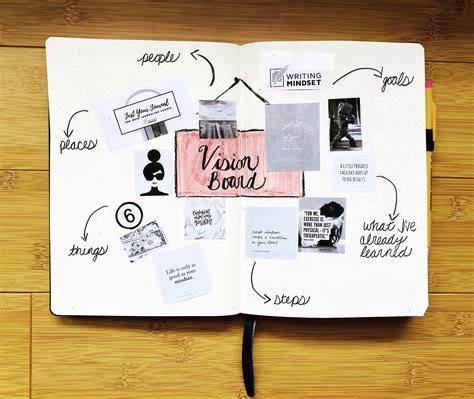 people
WRITING
MINDSET
goals
Just Your Journal
places
Vision
Board
A LITTLE PROGRESS
EACH DAY ADDS UP
TO BIG RESULTS
6
"FOR ME,
EXERCISE IS
MORE THAN
JUST PHYSICAL
- IT'S
THERAPEUTIC."
what I've
already
learned
things
Life is only as
good as your
mindset.
create whatever
causes a revolution
in your heart
steps